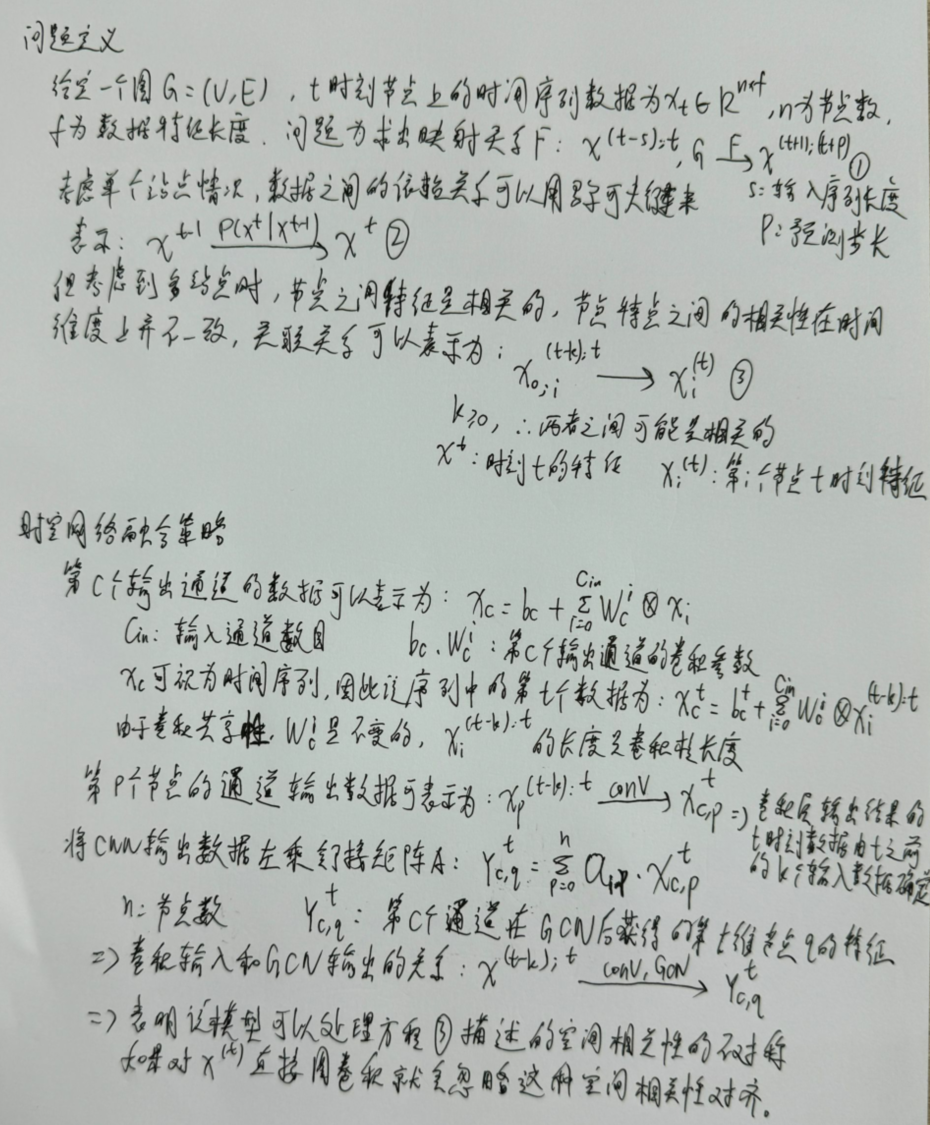 问题定义
给定一个图G=(V,E),t时刻节点上的时间序列数据为x_t∈R^{n×f},n为节点数,
f为数据特征长度.问题为求出映射关系F:x^{(t-s):t},G \xrightarrow{F} x^{(t+1):(t+p)}①
考虑单个站点情况,数据之间的依赖关系可以用马尔可夫链来
s:输入序列长度
表示:x^{t-1} \xrightarrow{P(x^t|x^{t-1})} x^t ②
P:预测步长
但考虑到多站点时,节点之间特征是相关的,节点特点之间的相关性在时间
维度上并不一致,关联关系可以表示为:x_{0:i}^{(t-k):t} → x_i^{(t)} ③
k≥0,∴两者之间可能是相关的
x^t:时刻t的特征 x_i^{(t)}:第i个节点t时刻特征
时空网络融合策略
第C个输出通道的数据可以表示为:x_c=b_c+\sum_{i=0}^{C_{in}}W_c^i⊗x_i
C_{in}:输入通道数目 b_c、W_c^i:第C个输出通道的卷积参数
x_c可视为时间序列,因此该序列中的第t个数据为:x_c^t=b_c^t+\sum_{i=0}^{C_{in}}W_c^i⊗x_i^{(t-k):t}
由于卷积共享性,W_c^i是不变的,x_i^{(t-k):t}的长度是卷积核长度
第P个节点的通道输出数据可表示为:x_p^{(t-k):t} \xrightarrow{conv} x_{c,p}^t ⇒卷积层输出结果的
t时刻数据由t之前
的k个输入数据确定
将CNN输出数据左乘邻接矩阵A:Y_{c,q}^t=\sum_{p=0}^{n}a_{q,p}·x_{c,p}^t
n:节点数 Y_{c,q}^t:第C个通道在GCN后获得的第t维节点q的特征
⇒卷积输入和GCN输出的关系:x^{(t-k):t} \xrightarrow{conv,GCN} Y_{c,q}^t
⇒表明该模型可以处理方程③描述的空间相关性的不对称
如果对x^{(t)}直接图卷积就会忽略这种空间相关性对齐。